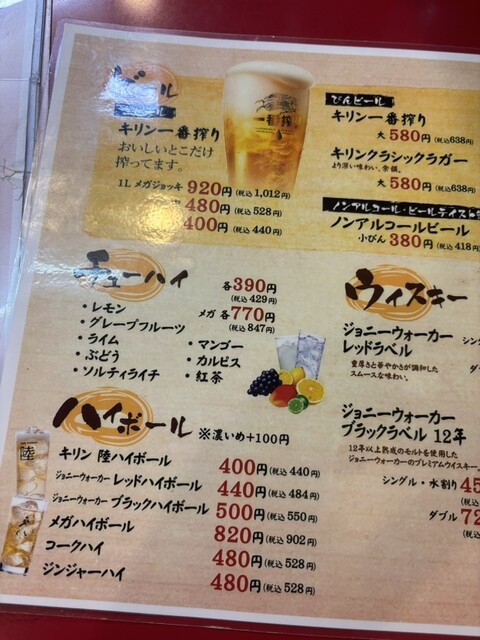 ビール
キリン一番搾り
おいしいとこだけ
搾ってます。
1L メガジョッキ 920円(税込1,012円)
480円(税込528円)
400円(税込440円)
一番搾り
びんビール
キリン一番搾り
大 580円(税込638円)
キリンクラシックラガー
より深い味わい、余韻。
大 580円(税込638円)
ノンアルコール・ビールテイスト
ノンアルコールビール
小びん 380円(税込418
チューハイ
各390円
(税込429円)
メガ 各770円
(税込847円)
・レモン
・グレープフルーツ
・ライム
・ぶどう
・ソルティライチ
・マンゴー
・カルピス
・紅茶
ウィスキー
ジョニーウォーカー
レッドラベル
重厚さと華やかさが調和した
スムースな味わい。
シン
ダ
ジョニーウォーカー
ブラックラベル 12年
12年以上熟成のモルトを使用した
ジョニーウォーカーのプレミアムウイスキー。
シングル・水割り 45
(税込
ダブル 72
(税込
ハイボール ※濃いめ+100円
キリン 陸ハイボール 400円(税込440円)
ジョニーウォーカー レッドハイボール 440円(税込484円)
ジョニーウォーカー ブラックハイボール 500円(税込550円)
メガハイボール 820円(税込902円)
コークハイ 480円(税込528円)
ジンジャーハイ 480円(税込528円)
陸